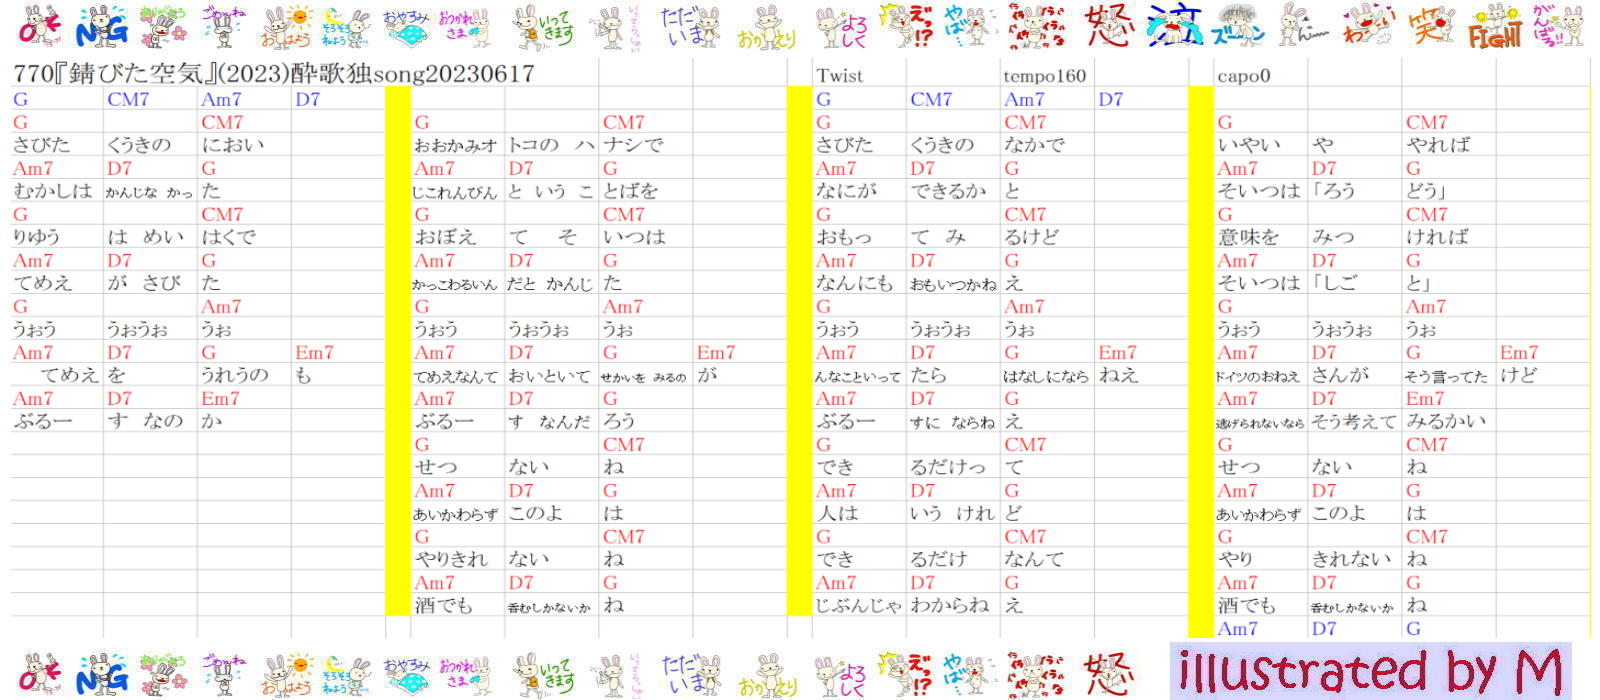 OK NG ありがとう ごめんね おはよう そろそろねよう おやすみ おつかれさま いってきます いってらっしゃい ただいま おかえり よろしく えっ!? やば… イライライライラ 怒 泣 ズーン わーい 笑 FIGHT がんばる!!
770『錆びた空気』(2023)酔歌独song20230617 Twist tempo160 capo0
G CM7 Am7 D7
G CM7
さびた くうきの におい
Am7 D7 G
むかしは かんじな かっ た
G CM7
りゆう は めい はくで
Am7 D7 G
てめえ が さび た
G Am7
うぉう うぉうぉ うぉ
Am7 D7 G Em7
てめえ を うれうの も
Am7 D7 Em7
ぶるー す なの か
G CM7
おおかみオ トコの ハ ナシで
Am7 D7 G
じこれんびん と いう こ とばを
G CM7
おぼえ て そ いつは
Am7 D7 G
かっこわるいん だと かんじ た
G Am7
うぉう うぉうぉ うぉ
Am7 D7 G Em7
てめえなんて おいといて せかいを みるの が
Am7 D7 G
ぶるー す なんだ ろう
G CM7
せつ ない ね
Am7 D7 G
あいかわらず このよ は
G CM7
やりきれ ない ね
Am7 D7 G
酒でも 呑むしかないか ね
G CM7 Am7 D7
G CM7
さびた くうきの なかで
Am7 D7 G
なにが できるか と
G CM7
おもっ て み るけど
Am7 D7 G
なんにも おもいつかね え
G Am7
うぉう うぉうぉ うぉ
Am7 D7 G Em7
んなこといって たら はなしになら ねえ
Am7 D7 G
ぶるー すに ならね え
G CM7
でき るだけっ て
Am7 D7 G
人は いう けれ ど
G CM7
でき るだけ なんて
Am7 D7 G
じぶんじゃ わからね え
G CM7
いやい や やれば
Am7 D7 G
そいつは 「ろう どう」
G CM7
意味を みつ ければ
Am7 D7 G
そいつは 「しご と」
G Am7
うぉう うぉうぉ うぉ
Am7 D7 G Em7
ドイツのおねえ さんが そう言ってた けど
Am7 D7 Em7
逃げられないなら そう考えて みるかい
G CM7
せつ ない ね
Am7 D7 G
あいかわらず このよ は
G CM7
やり きれない ね
Am7 D7 G
酒でも 呑むしかないか ね
Am7 D7 G
OK NG ありがとう ごめんね おはよう そろそろねよう おやすみ おつかれさま いってきます いってらっしゃい ただいま おかえり よろしく えっ!? やば… イライライライラ 怒
illustrated by M